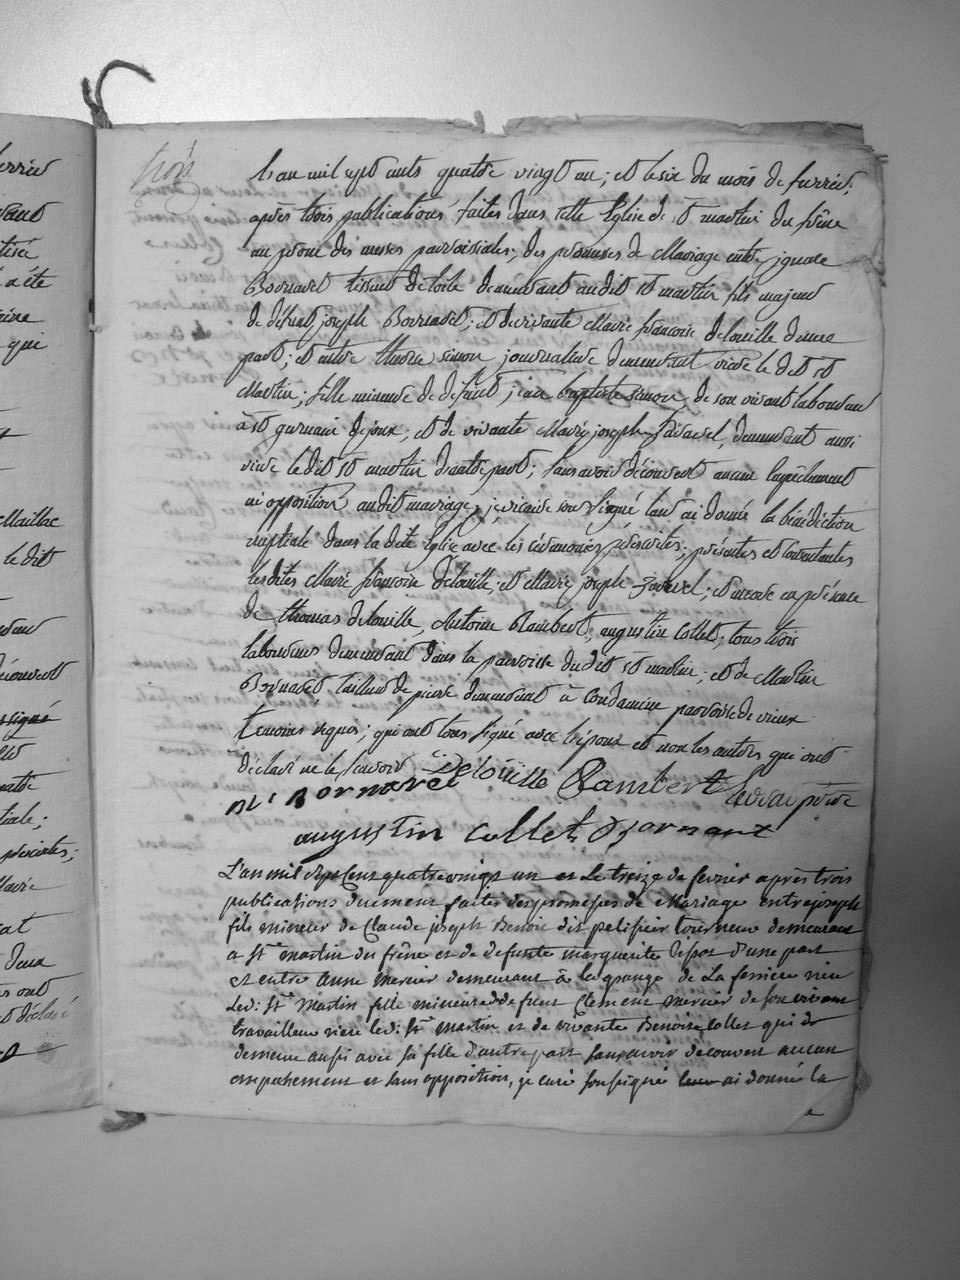 L'an mil sept cents quatre vingt un; et le six du mois de fevrier;
après trois publications faites dans cette Eglise de st martin du frêne
au prone des messes parroissiales; des promesses de Mariage entre
Bornarel tisseur de toile demeurant au dit st martin fils majeur
de défunt joseph Bornarel; et de vivante Marie francoise delouille d'une
part; et entre simon journaliere demeurant riere le dit st
Martin; fille mineure de défunt jean baptiste simon, de son vivant laboureur
à st germain de joux; et de vivante Marie joseph demeurant aussi
riere le dit st martin d'autre part; sans avoir découvert aucun empêchement
ni opposition au dit mariage, je vicaire sous signé leur ai donné la bénédiction
nuptiale dans la dite Eglise avec les cérémonies préscrites; présentes et consentantes
les dites Marie francoise delouille; et Marie joseph; et encore en présence
de thomas delouille, Antoine Rambert, augustin Collet; tous trois
laboureurs demeurant dans la parroisse du dit st martin; et de Martin
Bornarel tailleur de pierre demeurant à Condamine parroisse de vieux
temoins requis; qui ont tous signé avec l'epoux et non les autres qui ont
déclaré ne le scavoir Delouille Rambert
Mt Bornarel prêtre
augustin collet Bornarel
L'an mil sept cens quatre vingt un et Le treize de fevrier après trois
publications duement faites des promesses de Mariage entre joseph
fils mineur de Claude joseph Benoit dit pelissier tourneur demeurant
a st martin du frêne et de defunte marguerite d'une part
et entre anne mercier demeurant à la grange de La ferriere riere
Led: st Martin fille mineure de defunt Clement mercier de son vivant
travailleur riere led: st martin et de vivante Benoite Collet qui
demeure aussi avec sa fille d'autre part sans avoir decouvert aucun
empechement et sans opposition, je curé soussigné leur ai donné la